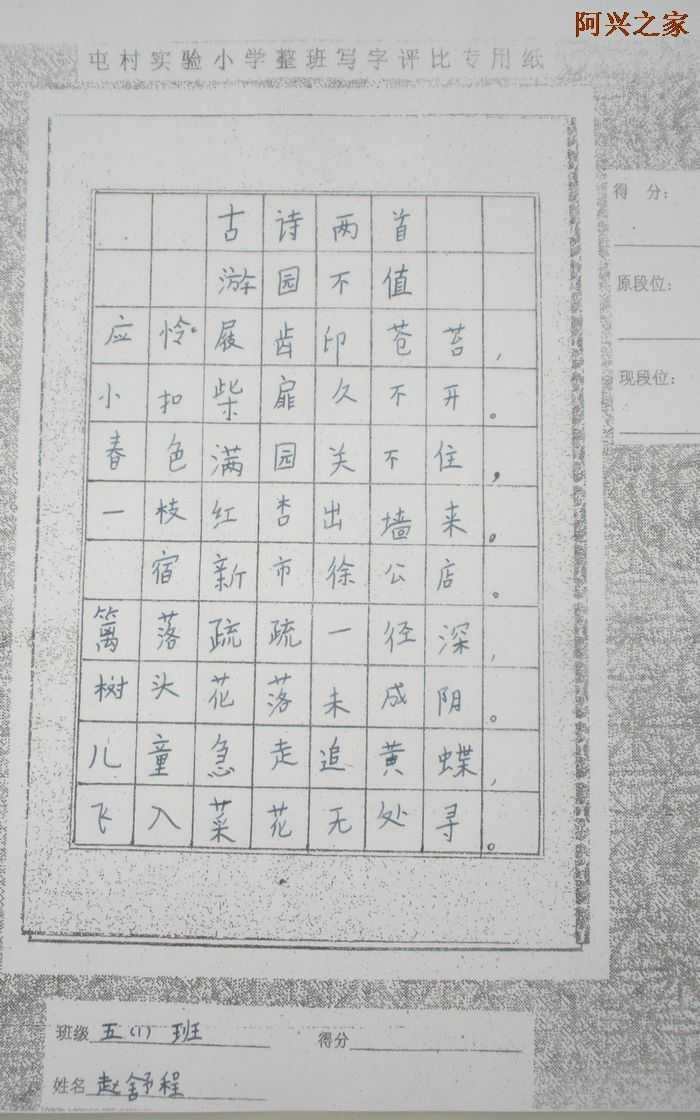 阿兴之家
屯村实验小学整班写字评比专用纸
得 分:
原段位:
现段位:
古诗两首
游园不值
应怜屐齿印苍苔,
小扣柴扉久不开。
春色满园关不住,
一枝红杏出墙来。
宿新市徐公店。
篱落疏疏一径深,
树头花落未成阴。
儿童急走追黄蝶,
飞入菜花无处寻。
班级 五(1) 班 得分
姓名 赵舒程